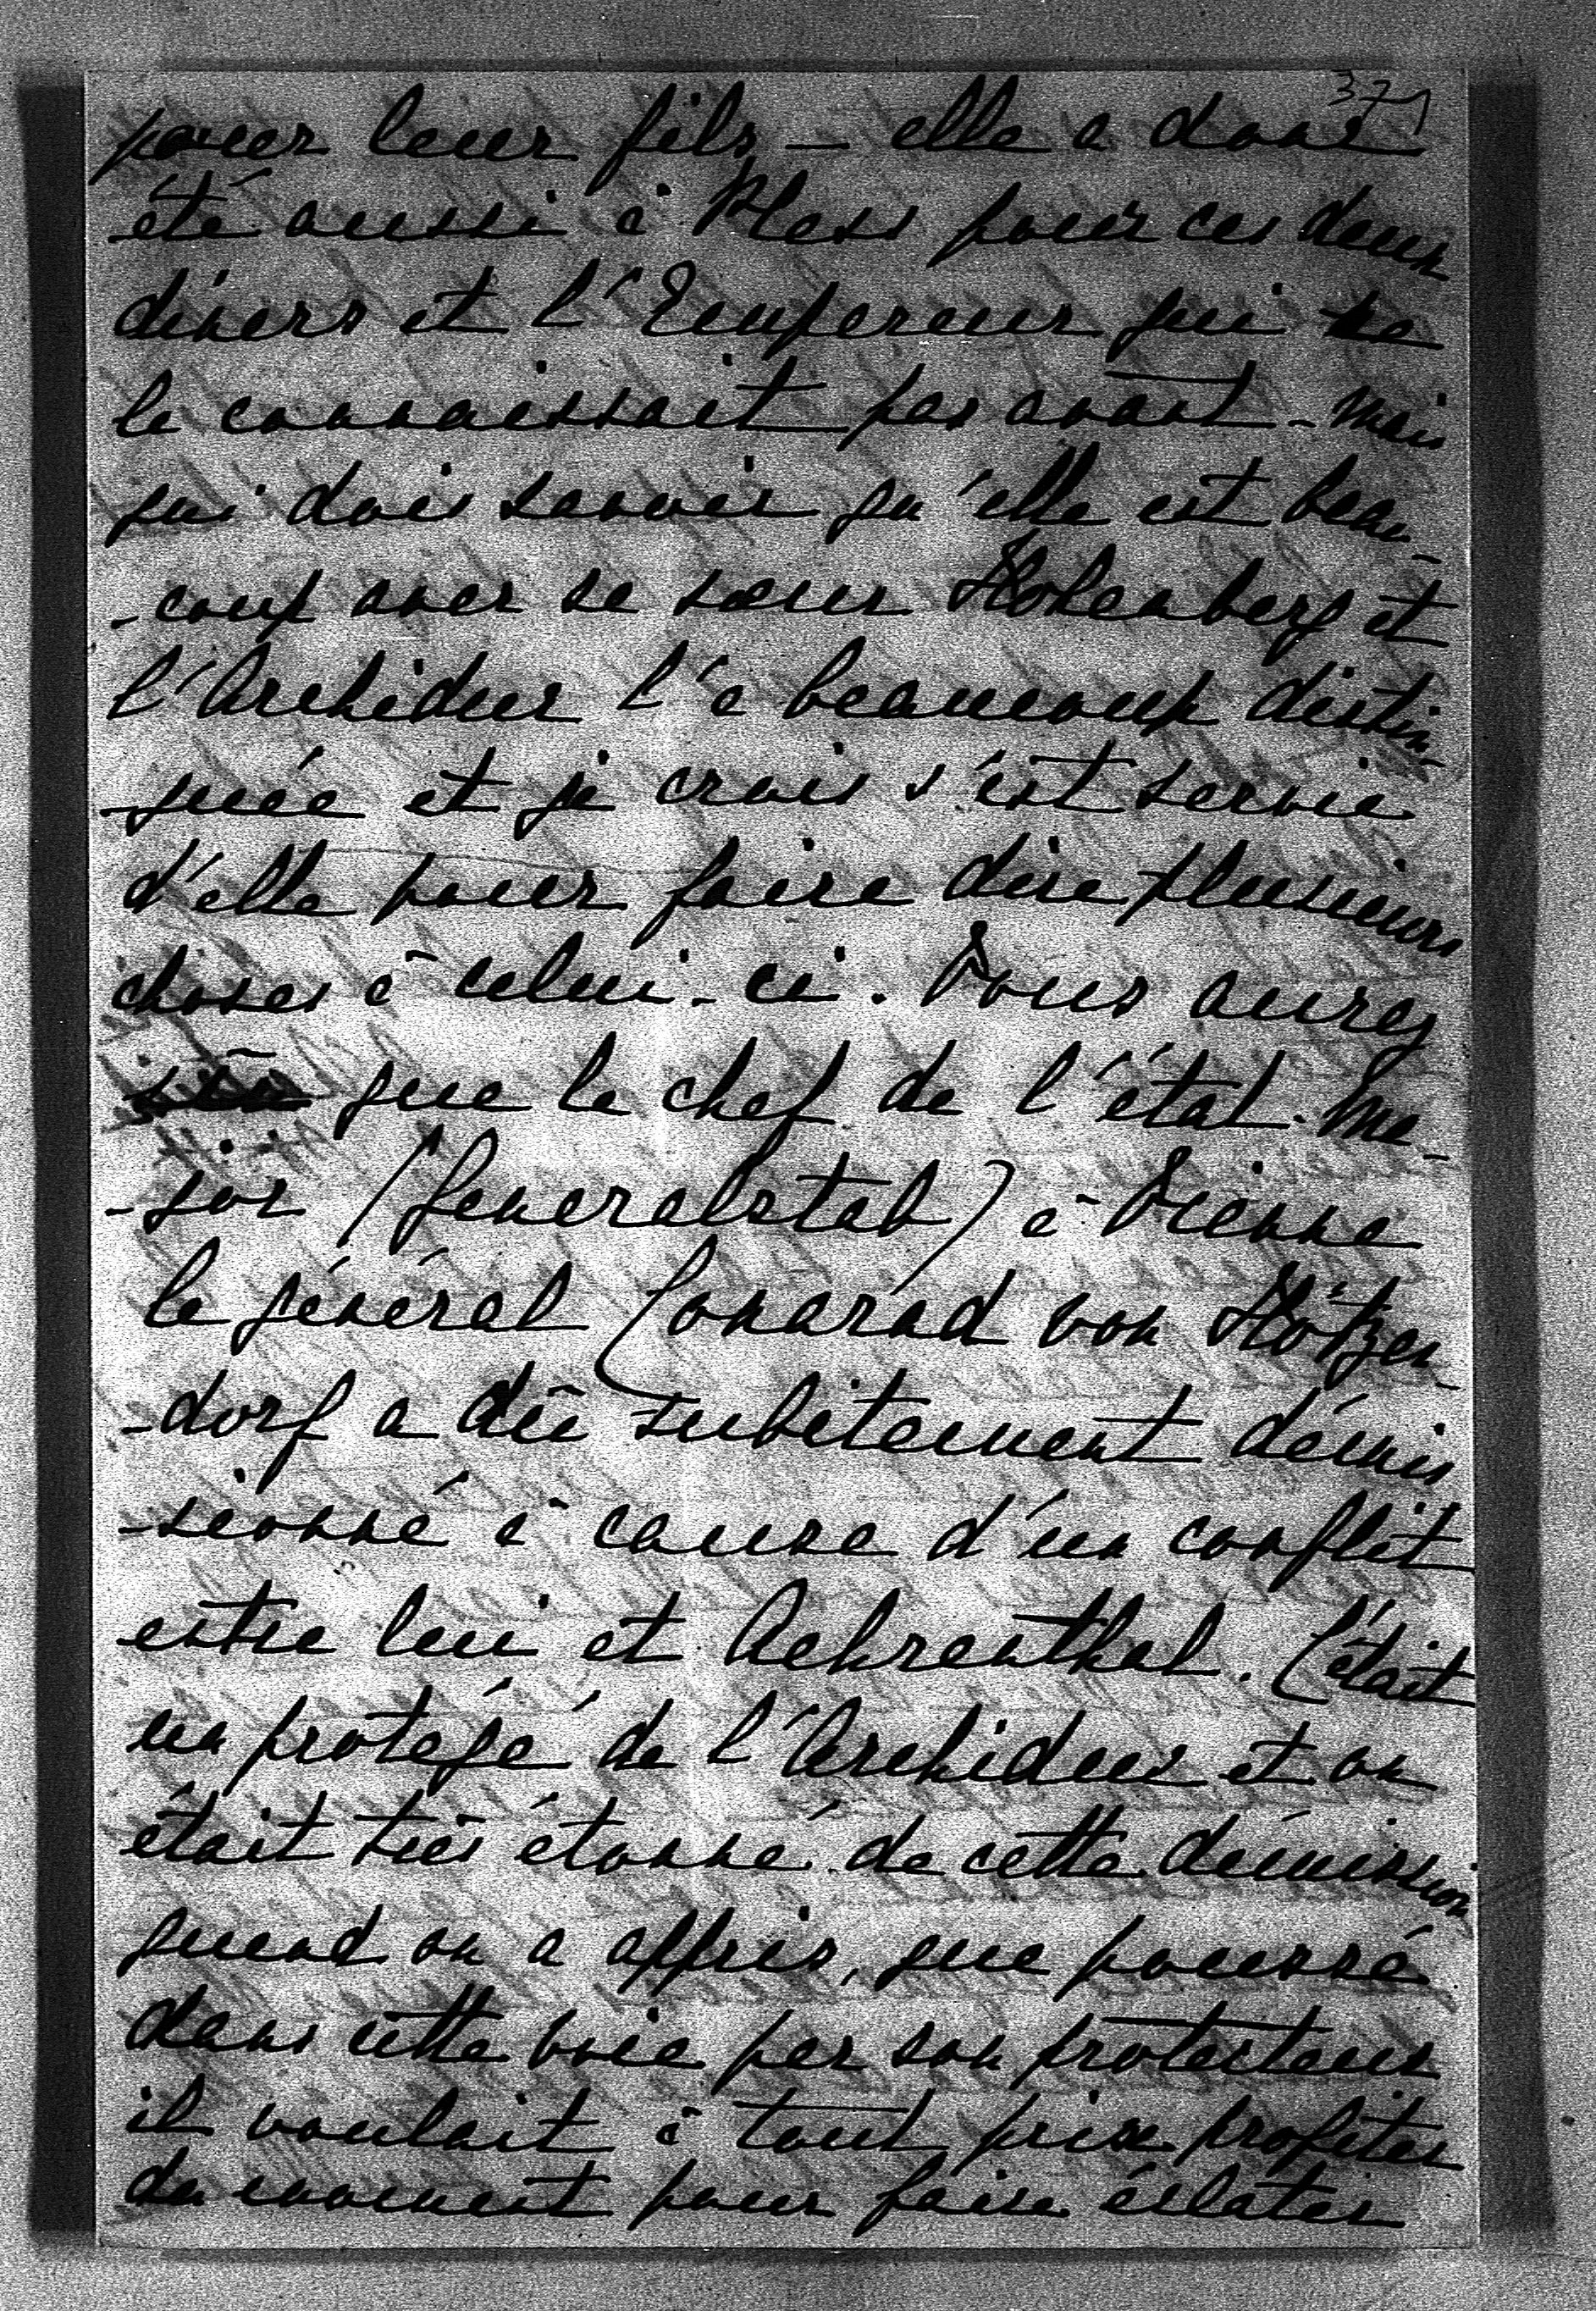 379
pour leur fils – elle a donc
été aussi à Pless pour ces deux
dîners et l'Empereur qui ne
la connaissait pas avant – mais
qui dois savoir qu'elle est beau-
-coup avec sa sœur Hohenberg et
l'Archiduc l'a beaucoup distin-
-guée et je crois s'est servie
d'elle pour faire dire plusieurs
choses à celui-ci. Vous aurez
que le chef de l'état-ma-
-jor (Generalstab) à Vienne
le général Conarad von Hötzen-
-dorf a dû subitement démis
-sionné à cause d'un conflit
entre lui et Aehrenthal. C'était
un protégé de l'Archiduc et on
était très étonné de cette démission
quand on a appris, que poussé
dans cette voie par son protecteur
il voulait à tout prix profiter
du moment pour faire éclater